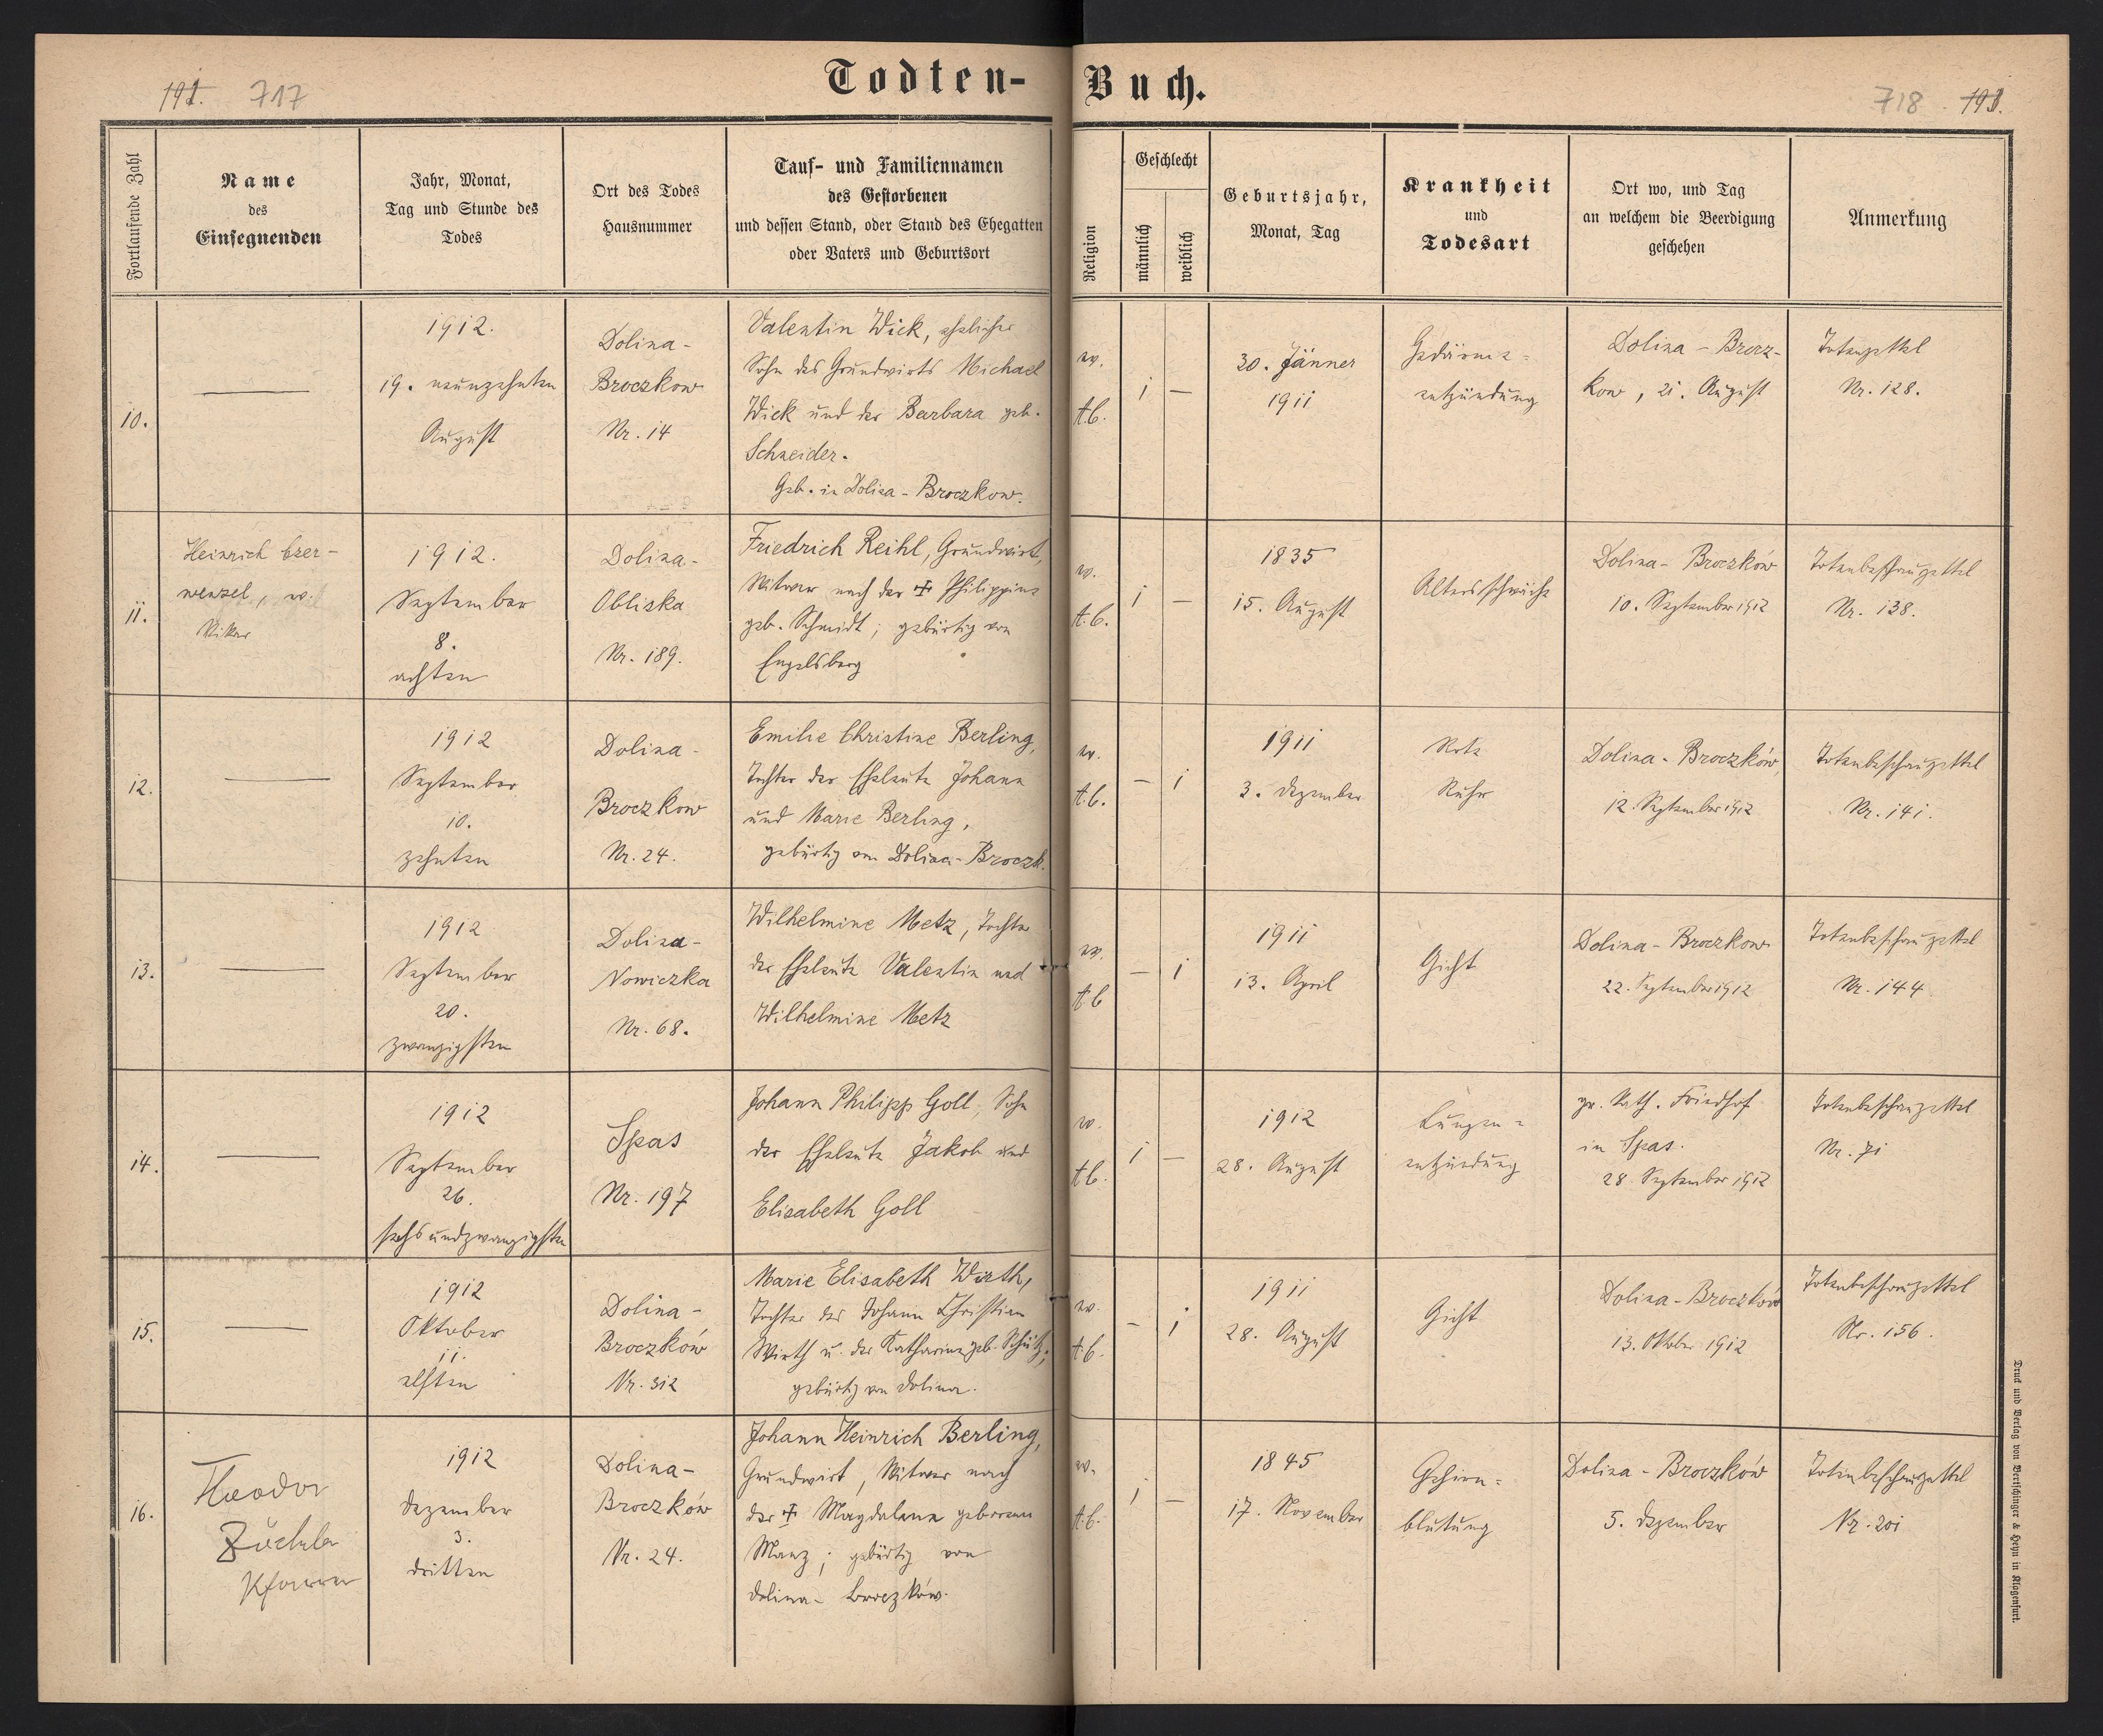 717
Todten-
Buch.
718
Fortlaufende Zahl
Name
des
Einsegnenden
Jahr, Monat,
Tag und Stunde des
Todes
Ort des Todes
Hausnummer
Tauf- und Familiennamen
des Gestorbenen
und dessen Stand, oder Stand des Ehegatten
oder Vaters und Geburtsort
Religion
Geschlecht
männlich
weiblich
Geburtsjahr,
Monat, Tag
Krankheit
und
Todesart
Ort wo, und Tag
an welchem die Beerdigung
geschehen
Anmerkung
10.
1912.
19. neunzehnten
August
Dolina-
Broczkow
Nr. 14
Valentin Wick, ehelicher
Sohn des Grundwirts Michael
Wick und der Barbara geb.
Schneider.
Geb. in Dolina-Broczkow.
ev.
A.C.
1 —
30. Jänner
1911
Gedärme-
entzündung
Dolina-Brocz-
kow, 21. August
Totenzettel
Nr. 128.
11.
Heinrich Czer-
wenzel, ev.
Vikar
1912.
September
8.
achten
Dolina-
Obliska
Nr. 189.
Friedrich Reihl, Grundwirt,
Witwer nach der ✝ Philippine
geb. Schmidt; gebürtig von
Engelsberg
ev.
A.C.
1 —
1835
15. August
Altersschwäche
Dolina-Broczków
10. September 1912
Totenbeschauzettel
Nr. 138.
12.
1912
September
10.
zehnten
Dolina-
Broczkow
Nr. 24.
Emilie Christine Berling,
Tochter der Eheleute Johann
und Marie Berling,
gebürtig von Dolina-Broczk.
ev.
A.C.
— 1
1911
3. Dezember
Rote
Ruhr
Dolina-Broczków,
12. September 1912
Totenbeschauzettel
Nr. 141.
13.
1912
September
20.
zwanzigsten
Dolina-
Nowiczka
Nr. 68.
Wilhelmine Metz, Tochter
der Eheleute Valentin und
Wilhelmine Metz
ev.
A.C
— 1
1911
13. April
Gicht
Dolina-Broczkow
22. September 1912
Totenbeschauzettel
Nr. 144
14.
1912
September
26.
sechsundzwanzigsten
Spas
Nr. 197
Johann Philipp Goll, Sohn
der Eheleute Jakob und
Elisabeth Goll
ev.
A.C.
1 —
1912
28. August
Lungen-
entzündung
gr. kath. Friedhof
in Spas.
28. September 1912
Totenbeschauzettel
Nr. 71
15.
1912
Oktober
11.
elften
Dolina-
Broczków
Nr. 312
Marie Elisabeth Wirth,
Tochter des Johann Christian
Wirth u. der Katharina geb. Schütz,
gebürtig von Dolina.
ev.
A.C.
— 1
1911
28. August
Gicht
Dolina-Broczków
13. Oktober 1912
Totenbeschauzettel
Nr. 156.
16.
Theodor
Zöckler
Pfarrer
1912
Dezember
3.
dritten
Dolina-
Broczków
Nr. 24.
Johann Heinrich Berling,
Grundwirt, Witwer nach
der ✝ Magdalena geborenen
Manz; gebürtig von
Dolina-Broczków.
ev.
A.C.
1 —
1845
17. November
Gehirn-
blutung
Dolina-Broczków
5. Dezember
Totenbeschauzettel
Nr. 201
Druck und Verlag von Bertschinger & Heyn in Klagenfurt.